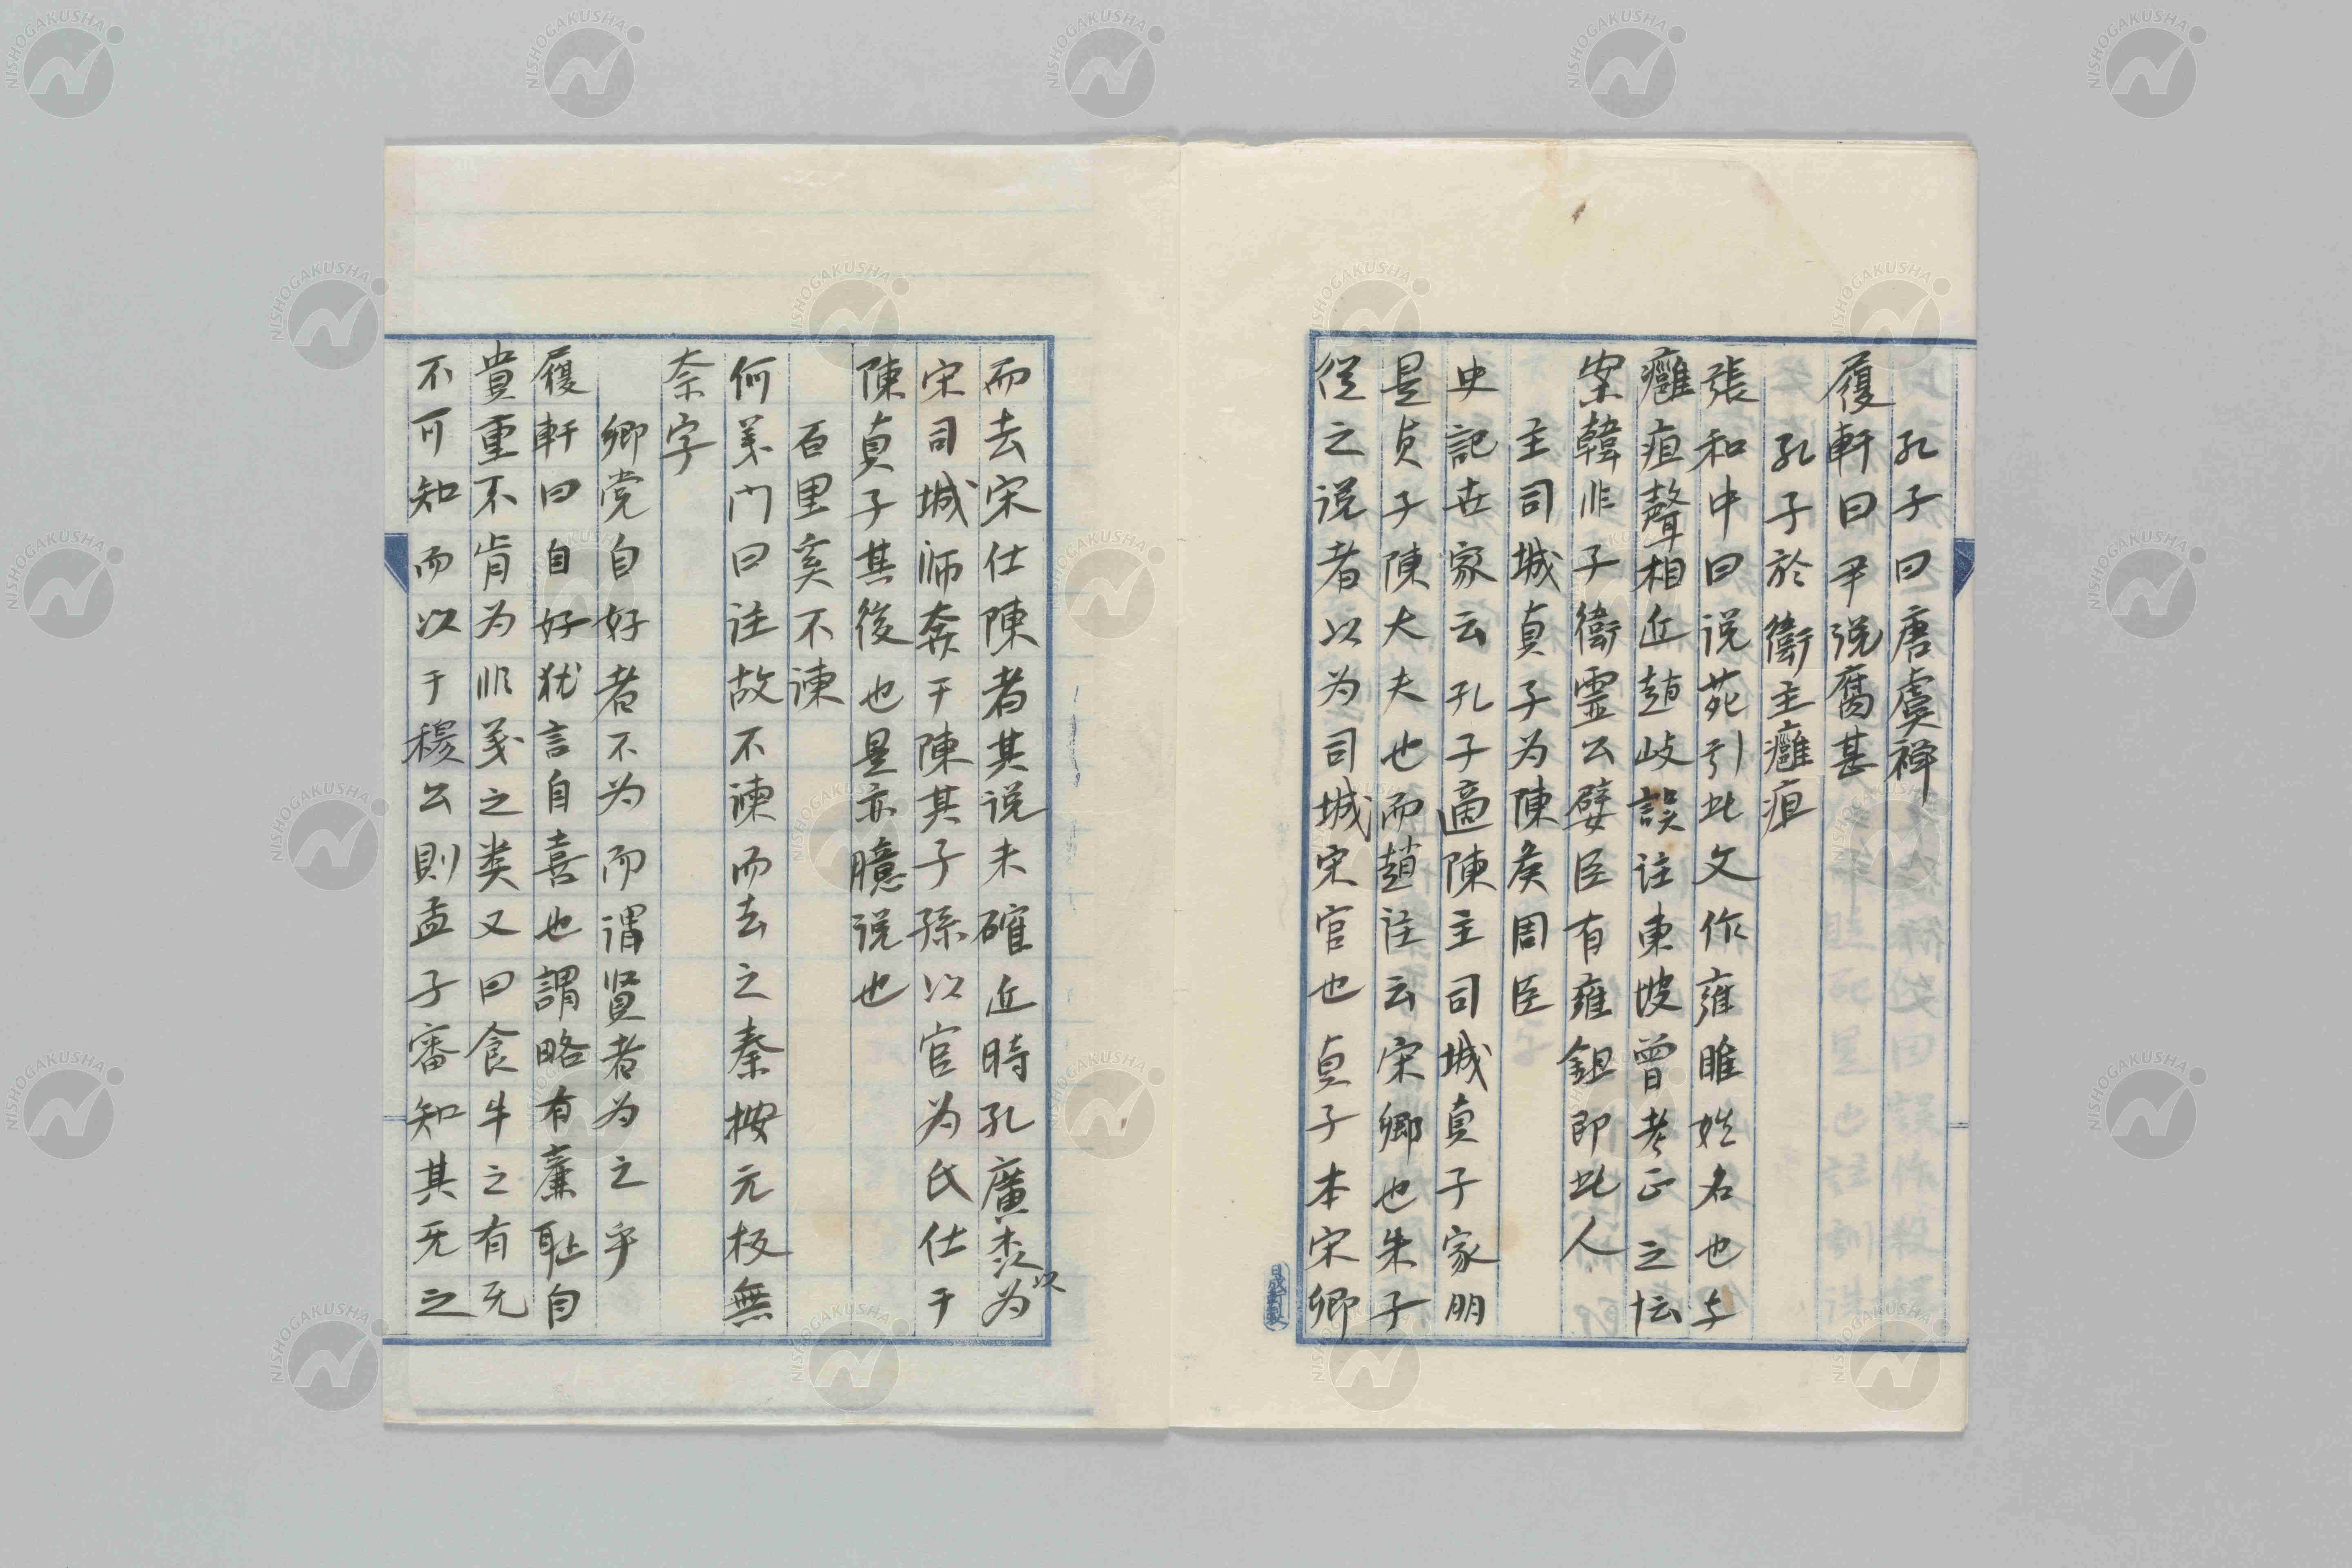 孔子曰唐虞禅
履軒曰尹説腐甚
孔子於衛主癰疽
張和中曰说苑引此文作雍雎姓名也与
癰疽聲相近趙岐誤注東坡曾考正之坛
案韓非子衛霊公嬖臣有雍鉏即此人
主司城貞子为陳侯周臣
史記世家云孔子適陳主司城貞子家朋
是貞子陳大夫也而趙注云宋卿也朱子
従之说者以为司城宋官也貞子本宋卿
而去宋仕陳者其说未確近時孔廣森以为
宋司城师奔于陳其子孫以官为氏仕于
陳貞子其後也是亦臆说也
百里奚不諫
何義门曰注故不諫而去之秦按元板無
奈字
鄉党自好者不为而谓贤者为之乎
履軒曰自好犹言自喜也謂略有廉耻自
貴重不肯为非義之类又曰食牛之有无
不可知而以于穆公則孟子審知其无之